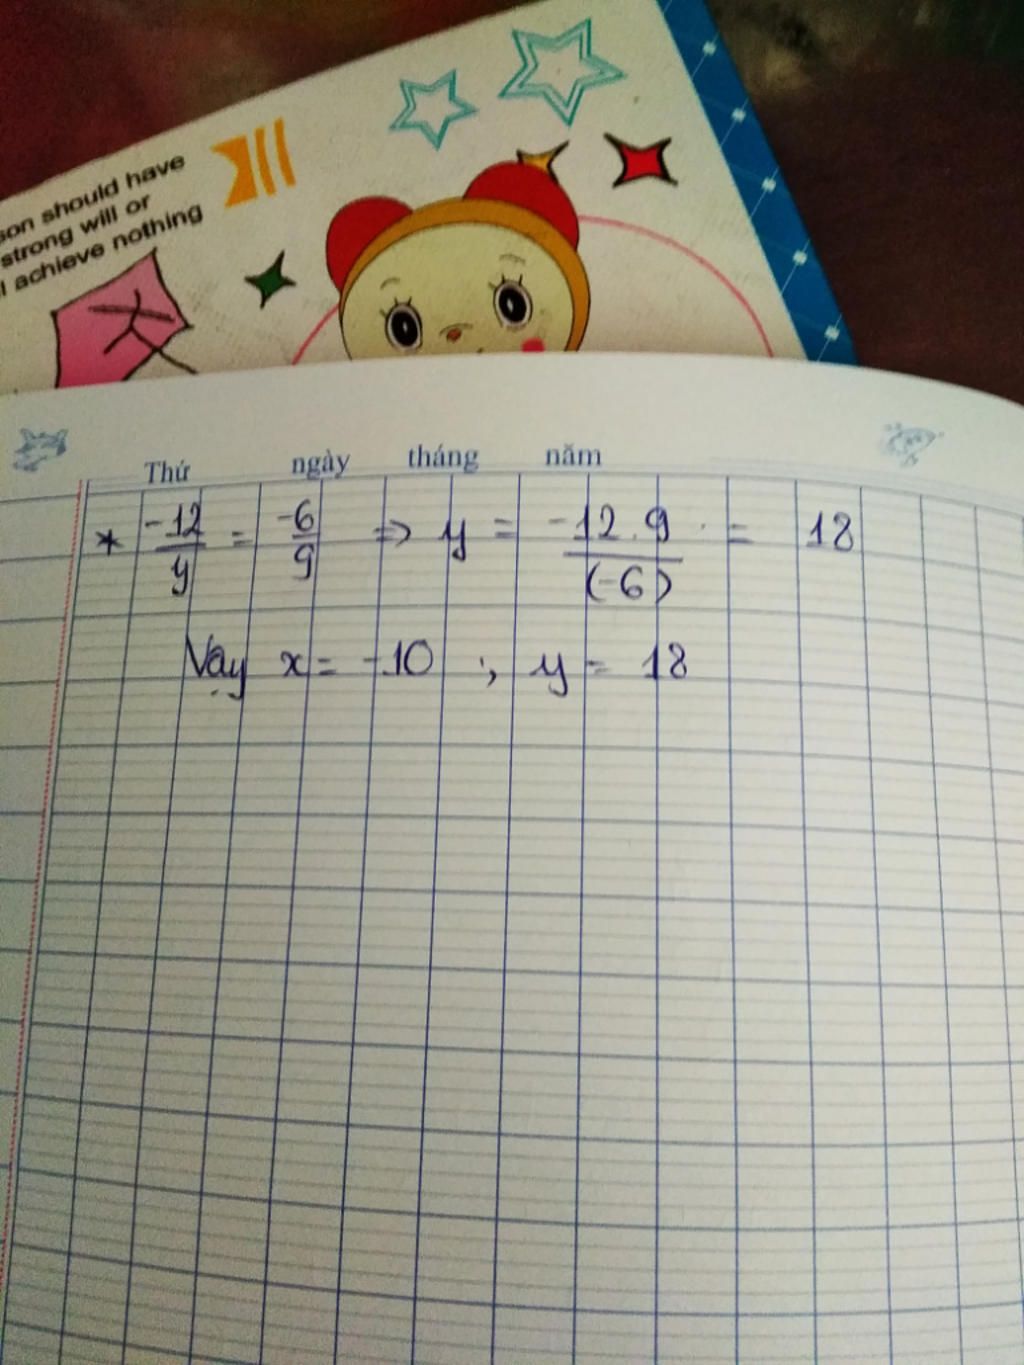 son should have
strong will or
l achieve nothing
Thứ ngày tháng năm
* -12/y = -6/9 => y = -12.9/(-6) = 18
Vậy x = -10 ; y = 18